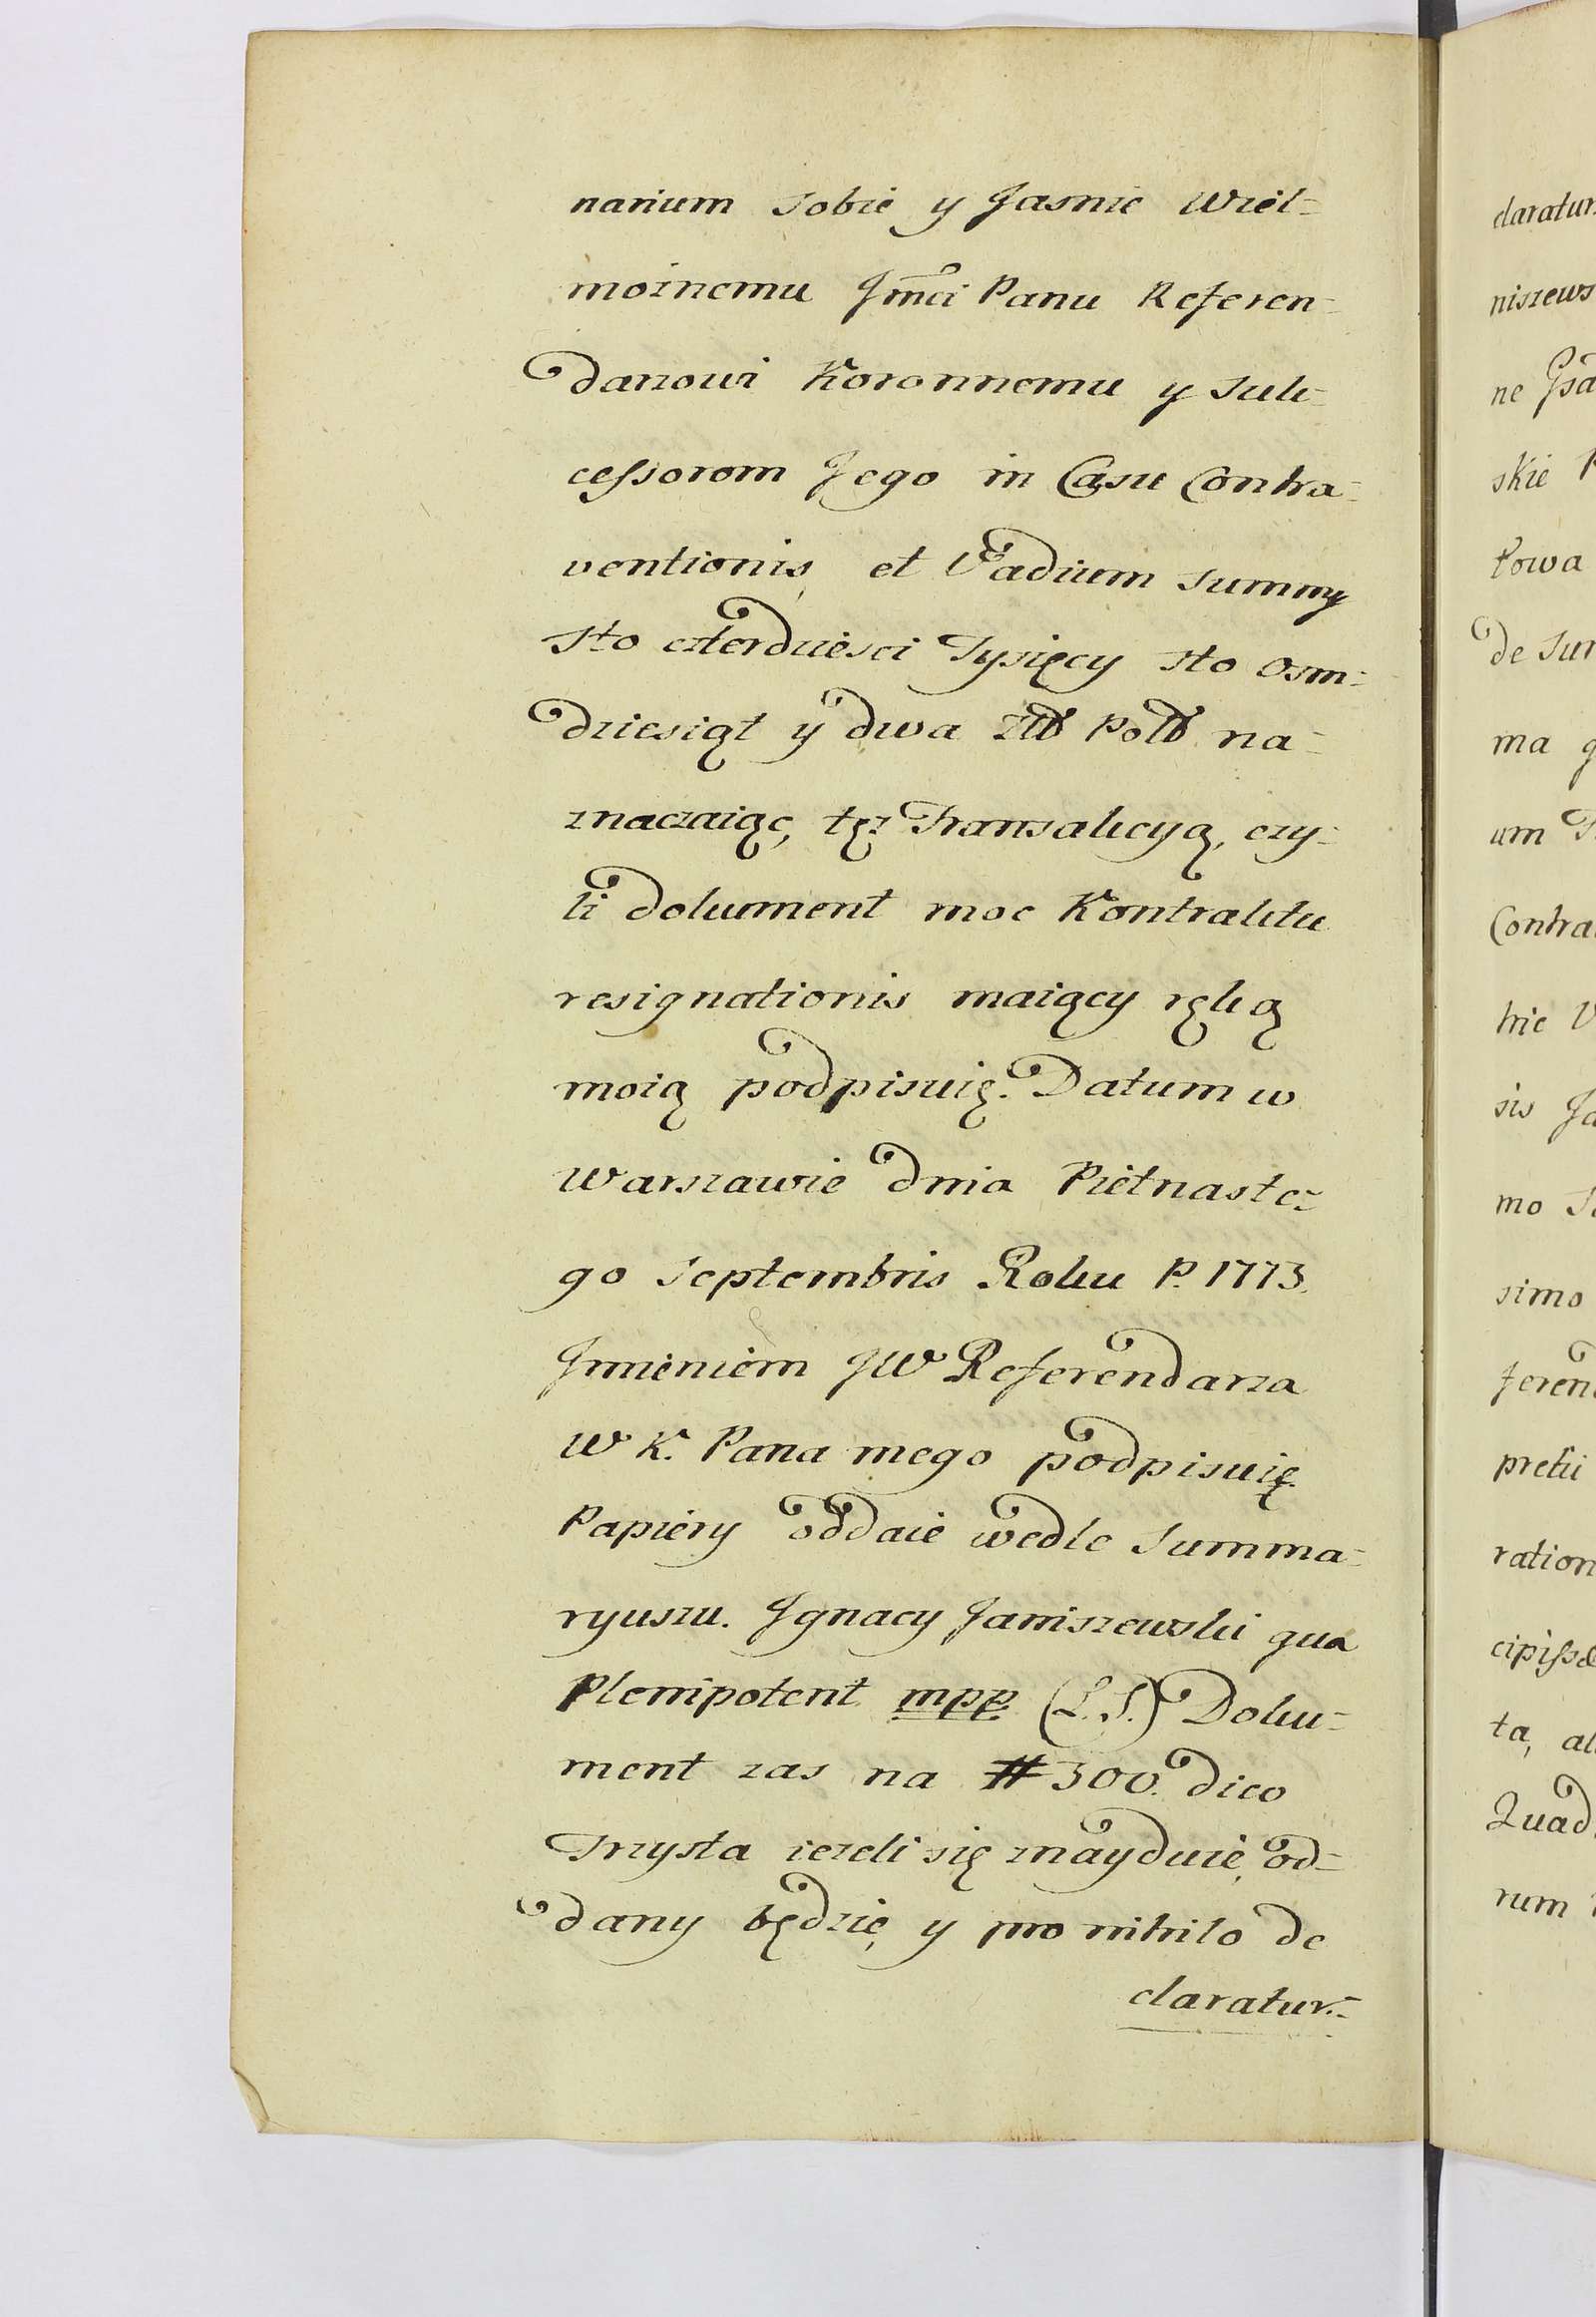 narium sobie y Jasnie Wiel-
moznemu Jmci Panu Referen-
darzowi Koronnemu y Suk-
cessorom Jego in Casu Contra-
ventionis, et Vadium summy
sto czterdziesci Tysięcy sto osm-
dziesiąt y dwa Złł Poll na-
znaczaiąc, tęz Transakcyą, czy-
li dokument moc Kontraktu
resignationis maiący ręką
moią podpisuię. Datum w
Warszawie dnia Pietnaste-
go Septembris Roku P. 1773.
Jmieniem JW Referendarza
W K. Pana mego podpisuię.
Papiery oddaie wedle Summa-
ryuszu. Jgnacy Janiszewski qua
Plenipotent mpp (L.S.) Doku-
ment zas na # 300. dico
Trzysta iezeli się znayduie, od-
dany będzie, y pro nihilo de
claratur.-
claratur.
niszews
ne
skie
towa
de Sum
ma
um
Contra
hic V
sis Ja
mo
simo
feren
pretii
ration
cipisse
ta, al
Quad
rum